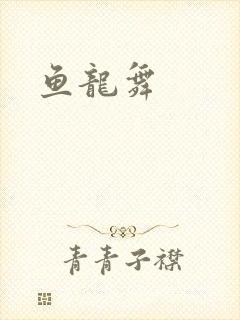 鱼龍舞
青青子襟